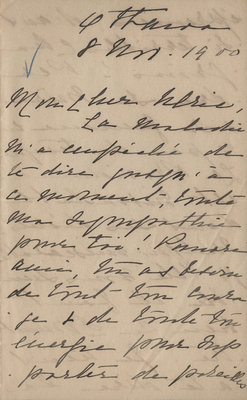 Ottawa
8 Nov. 1900
Mon cher Ulric,
La maladie
m'a empêché de
te dire jusqu'à
ce moment, toute
ma sympathie
pour toi! Pauvre
ami, tu as besoin
de tout ton coura
ge & de toute ton
énergie pour sup
porter de pareilles